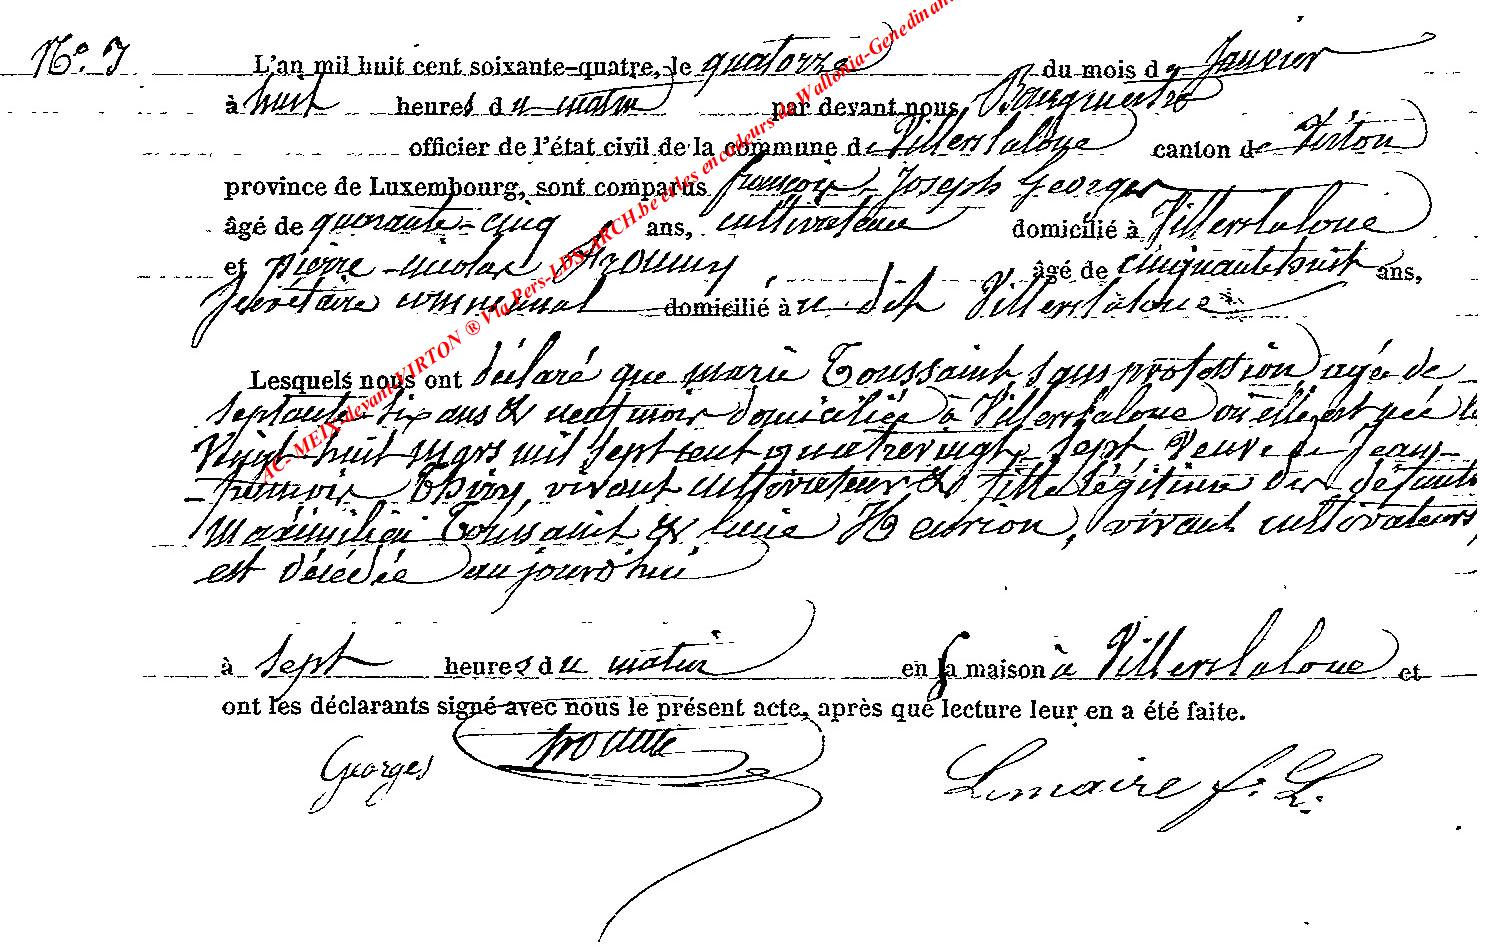 N.o
L'an mil huit cent soixante-quatre, le quatorze du mois de Janvier
à huit heures du matin par devant nous Bourgmestre
officier de l'état civil de la commune de Villerslaloue canton de Virton
province de Luxembourg, sont comparus françois-Joseph Georges
âgé de quarante-cinq ans, cultivateur domicilié à Villerslaloue
et pierre-nicolas âgé de cinquante huit ans,
secrétaire communal domicilié à u dit Villerslaloue
Lesquels nous ont déclaré que marie Toussaint, sans profession, agée de
septante-six ans & neuf mois domiciliée à Villerslaloue où elle est née le
Vingt-huit mars mil sept cent quatrevingt-sept, veuve de Jean-
-françois Thiry, vivant cultivateur & fille légitime des défunts
maximilien Toussaint & lucie Henrion, vivant cultivateurs,
est décédée aujourd'hui
à sept heures du matin en sa maison à Villerslaloue et
ont les déclarants signé avec nous le présent acte, après que lecture leur en a été faite.
Georges Lemaire f. L.
AC- MEIX devant VIRTON ® Via Pers-LDS-ARCH.be et les encodeurs de Wallonia-Genedinant